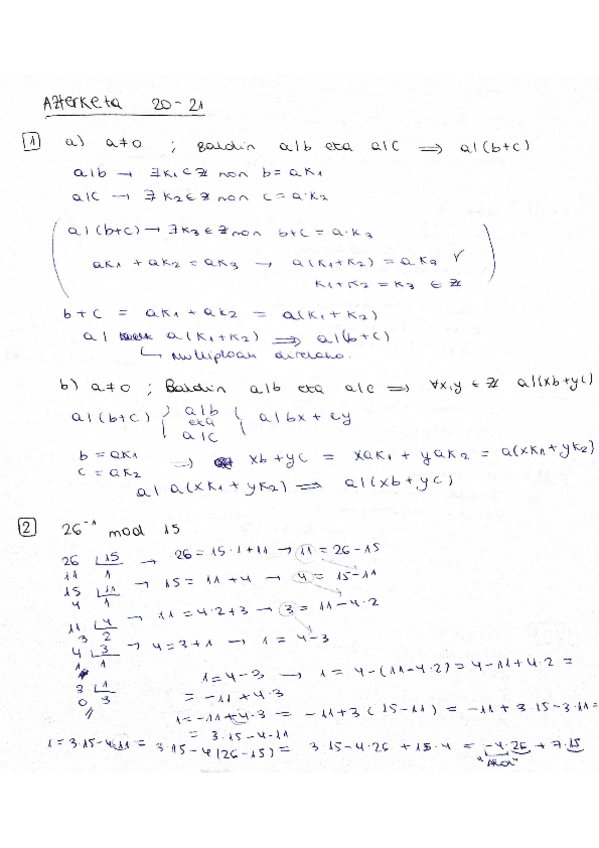 Azterketa 20-21
1 a) a≠0 ; Baldin a|b eta a|c ⟹ a|(b+c)
a|b → ∃k₁∈ℤ non b=ak₁
a|c → ∃k₂∈ℤ non c=a·k₂
a|(b+c) → ∃k₃∈ℤ non b+c = a·k₃
ak₁ + ak₂ = ak₃ → a(k₁+k₂) = ak₃ ✓
k₁+k₂ = k₃ ∈ ℤ
b+c = ak₁ + ak₂ = a(k₁+k₂)
a| a(k₁+k₂) ⟹ a|(b+c)
↳ multiploak direlako.
b) a≠0 ; Baldin a|b eta a|c ⟹ ∀x,y ∈ ℤ a|(xb+yc)
a|(b+c) } a|b eta a|c { a|bx + cy
b = ak₁
c = ak₂ ⟹ xb+yc = xak₁ + yak₂ = a(xk₁+yk₂)
a| a(xk₁+yk₂) ⟹ a|(xb+yc)
2 26⁻¹ mod 15
26 |15 → 26 = 15·1+11 → 11 = 26-15
11 1
15 |11 → 15 = 11+4 → 4 = 15-11
4 1
11 |4 → 11 = 4·2+3 → 3 = 11-4·2
3 2
4 |3 → 4 = 3+1 → 1 = 4-3
1 1
3 |1
0 3
1 = 4-3 → 1 = 4-(11-4·2) = 4-11+4·2 =
= -11+4·3
1 = -11+4·3 = -11+3(15-11) = -11+3·15-3·11 =
= 3·15-4·11
1 = 3·15-4·11 = 3·15-4(26-15) = 3·15-4·26+15·4 = -4·26+7·15